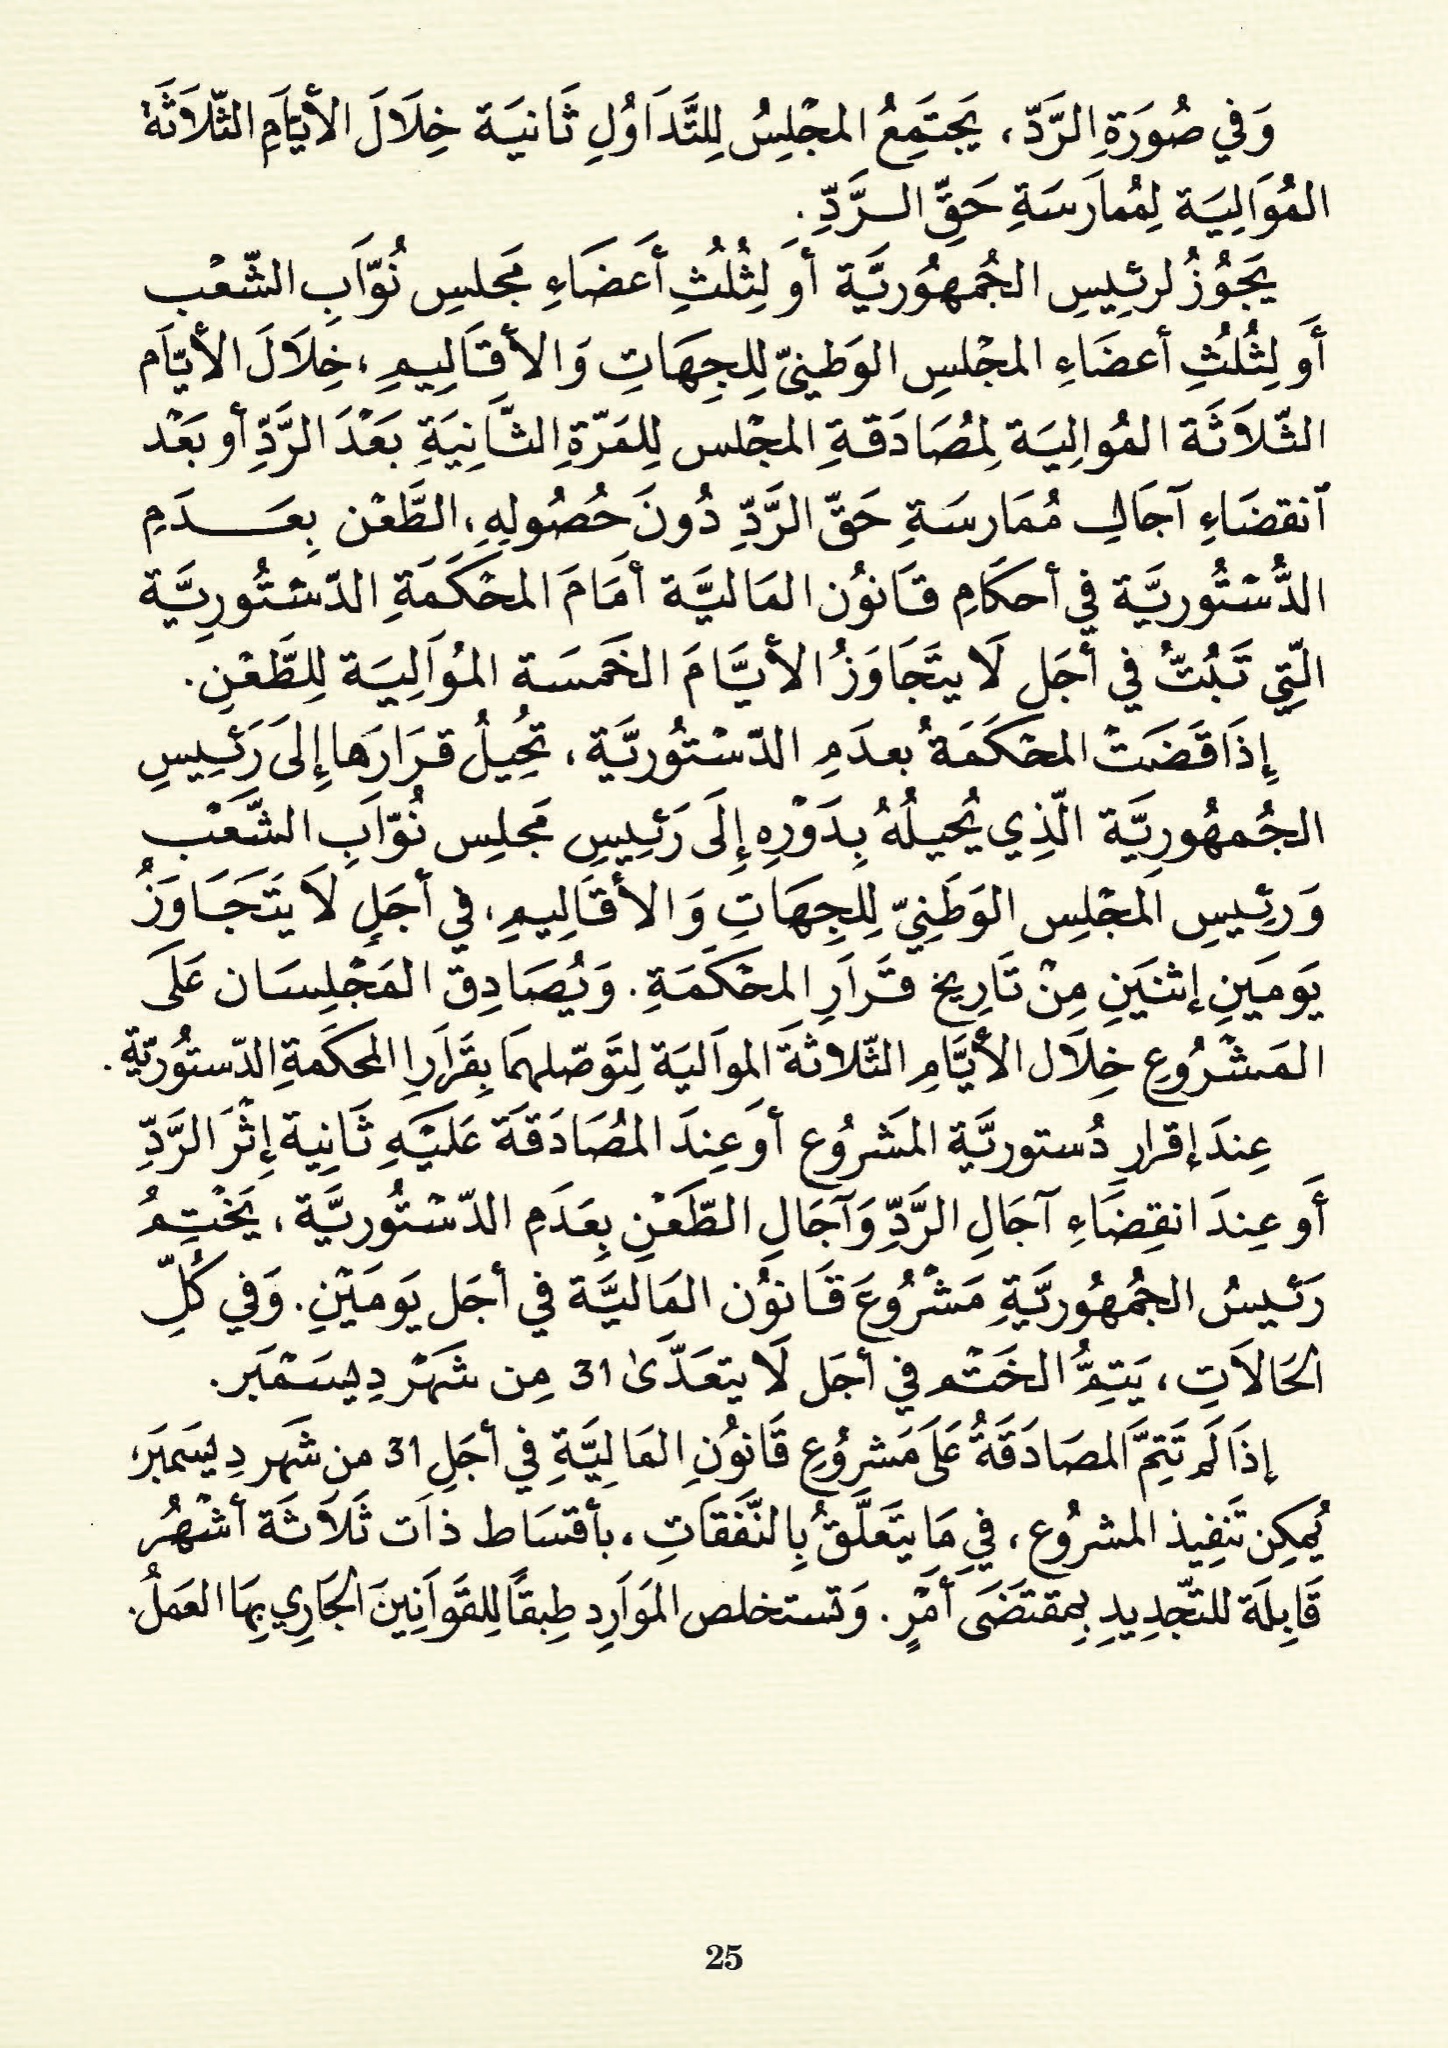 وَفي صُورَةِ الرَّدّ، يَجتَمِعُ المجْلِسُ لِلتَّدَاوُلِ ثَانيَة خِلَالَ الأيَّامِ الثّلَاثَة
المُوَالِيَة لِمُمارَسَةِ حَقِّ الرَّدِّ.
يَجُوُزُ لرئِيسِ الجُمهُوريَّة أو لِثُلُثِ أَعضَاءِ مَجلسِ نُوّابِ الشّعْب
أَو لِثُلُثِ أعضَاءِ المجْلسِ الوَطنيّ لِلجِهَاتِ وَالأقَالِيمِ، خِلَالَ الأيّام
الثّلاثَة المُوالِيَة لمُصَادَقةِ المجْلس لِلمَرّةِ الثَّانِيَةِ بَعْدَ الرَّدِّ أو بَعْد
ٱنقضَاءِ آجَالِ مُمَارسَةِ حَقّ الرَّدِّ دُونَ حُصُولِهِ، الطَّعْن بِعَدَمِ
الدُّسْتُوريَّة في أحكَامِ قَانوُن المَاليَّة أمَامَ المحْكَمَةِ الدّسْتُورِيَّة
الّتِي تَبُتُّ في أجَل لَا يتَجَاوَزُ الأيَّامَ الخَمسَة المُوَالِيَة لِلطَّعْنِ.
إِذَا قَضَتْ المحْكَمَةُ بعدَمِ الدّسْتوُريَّة، تُحِيلُ قرَارَها إِلَى رَئِيسِ
الجُمهُورِيَّة الّذِي يُحيلُهُ بِدَوْرِهِ إِلَى رَئِيسِ مَجلِس نُوّابِ الشَّعْب
وَرئِيسِ المجْلِس الوَطَنِيّ لِلجِهَاتِ وَالأقَالِيمِ، في أجَلٍ لَا يتَجَاوَزُ
يَومَينِ إثنَينِ مِنْ تَارِيخ قَرَارِ المحْكَمَةِ. وَيُصَادِق المَجْلِسَان عَلَى
المَشْرُوعِ خِلَال الأيَّامِ الثّلاثَة الموَالية لِتَوَصّلهمَا بِقَرَارِ المحكَمَةِ الدّستوُريّة.
عِندَ إقرارِ دُستوريَّة المَشرُوع أو عِندَ المُصَادَقَة عَلَيْهِ ثَانِية إِثْرَ الرَّدِّ
أَو عِندَ انقِضَاءِ آجَالِ الرَّدِّ وَآجَالِ الطّعَنِ بِعَدَمِ الدّسْتُوريَّة، يَخْتِمُ
رَئيسُ الجُمهُوريَّةِ مَشْرُوعَ قَانوُن المَاليَّة في أجَل يَومَيْنِ. وَفي كُلِّ
الحَالَاتِ، يَتِمُّ الخَتْم في أجَل لَا يتعَدَّىٰ 31 مِن شَهرْ دِيسَمْبَر.
إذَا لَم تَتِمَّ المصَادَقَةُ عَلَى مَشروُعِ قَانوُنِ المَالِيَّةِ في أجَلِ 31 من شَهر دِيسَمبَر،
يُمكِن تَنفِيذ المشرُوع، في مَا يتَعَلَّقُ بِالنَّفَقَاتِ، بأقسَاط ذات ثَلَاثَة أشْهُر
قَابِلَة للتّجْدِيدِ بِمقتَضَى أَمْرٍ. وَتستخلص المَوَارِد طِبقًا لِلقَوَانِينَ الجَارِي بِهَا العَمَلُ.
25